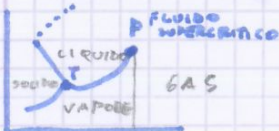 FLUIDO
P SUPERCRITICO
LIQUIDO
SOLIDO T GAS
VAPORE